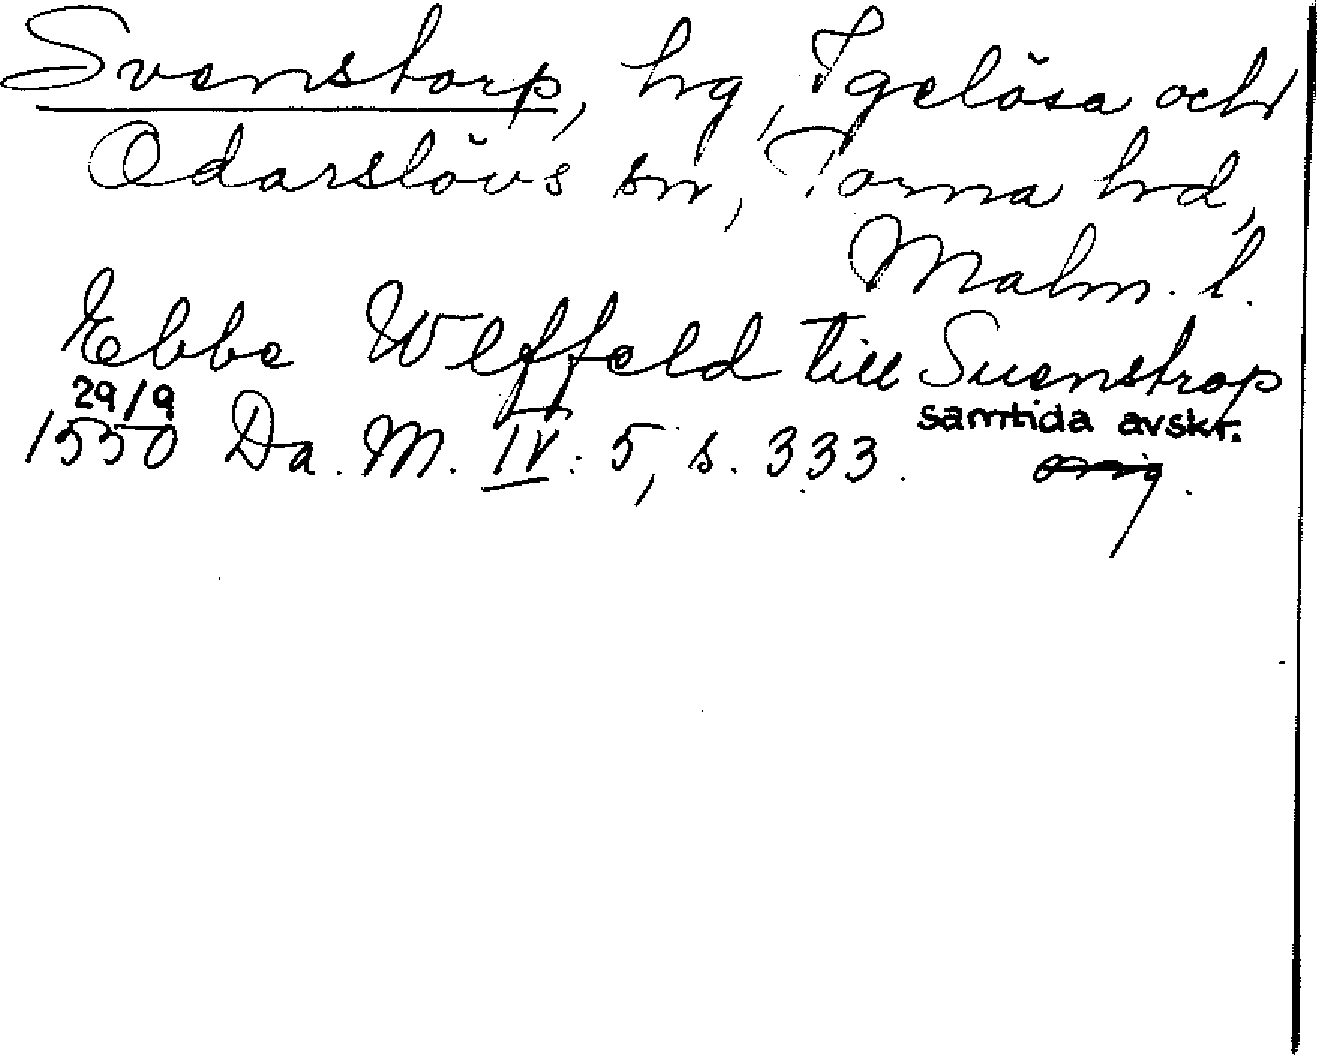 Svenstorp, hrg, Igelösa och
Odarslövs snr, Torna hrd,
Malm. l.
Ebbe Wlffeld till Suenstrop
29/9 samtida avskr.
1550 Da. M. IV: 5, s. 333. orig.